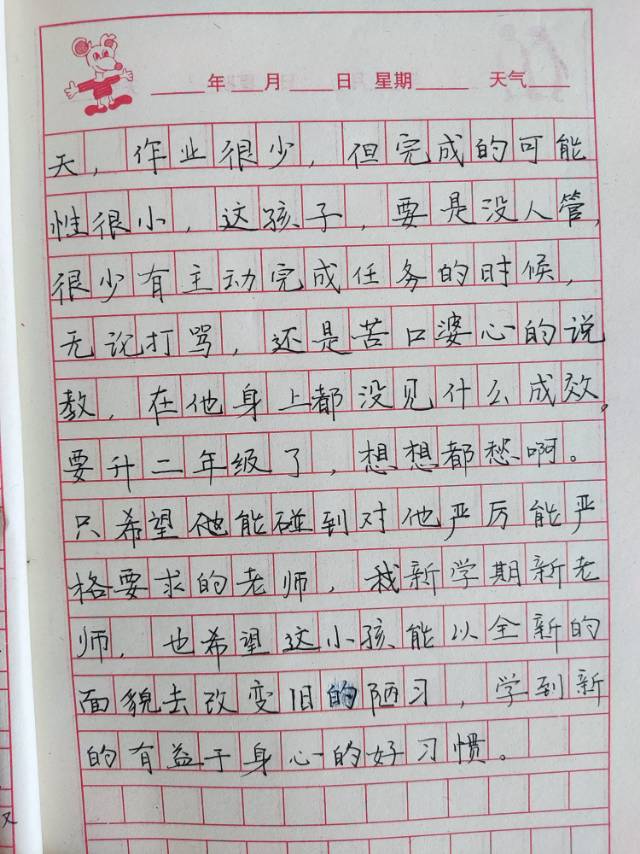 年 月 日 星期 天气
天，作业很少，但完成的可能
性很小，这孩子，要是没人管，
很少有主动完成任务的时候，
无论打骂，还是苦口婆心的说
教，在他身上都没见什么成效。
要升二年级了，想想都愁啊。
只希望他能碰到对他严厉能严
格要求的老师，我新学期新老
师，也希望这小孩能以全新的
面貌去改变旧的陋习，学到新
的有益于身心的好习惯。
又